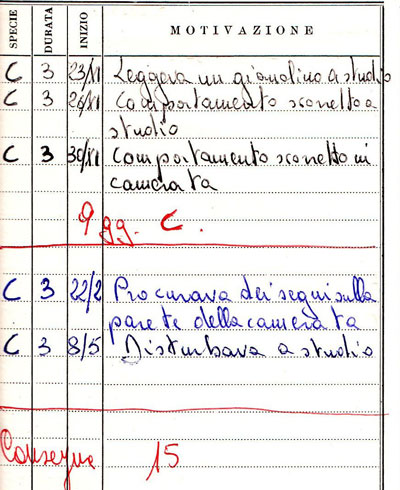 SPECIE DURATA INIZIO MOTIVAZIONE
C 3 23/XI Leggeva un giornalino a studio
C 3 26/XI Comportamento scorretto a
studio
C 3 30/XI Comportamento scorretto in
camerata
9 gg. C.
C 3 22/2 Procurava dei segni sulla
parete della camerata
C 3 8/5 Disturbava a studio
Consegne 15